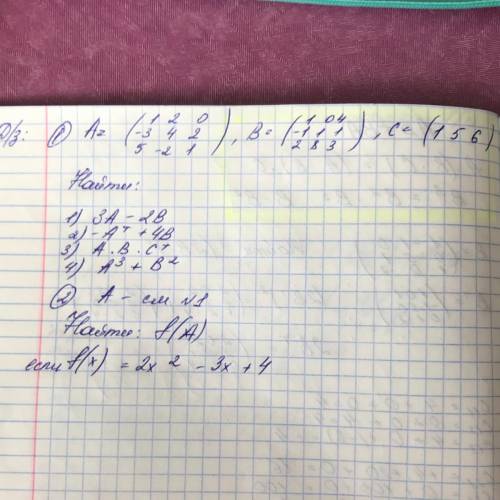 Д/з: ① A = ( 1 2 0 ; -3 4 2 ; 5 -2 1 ), B = ( 1 0 4 ; -1 1 1 ; 2 8 3 ), C = (1 5 6)
Найти:
1) 3A - 2B
2) -Aᵀ + 4B
3) A · B · Cᵀ
4) A³ + B²
② A - см №1
Найти: f(A)
если f(x) = 2x² - 3x + 4